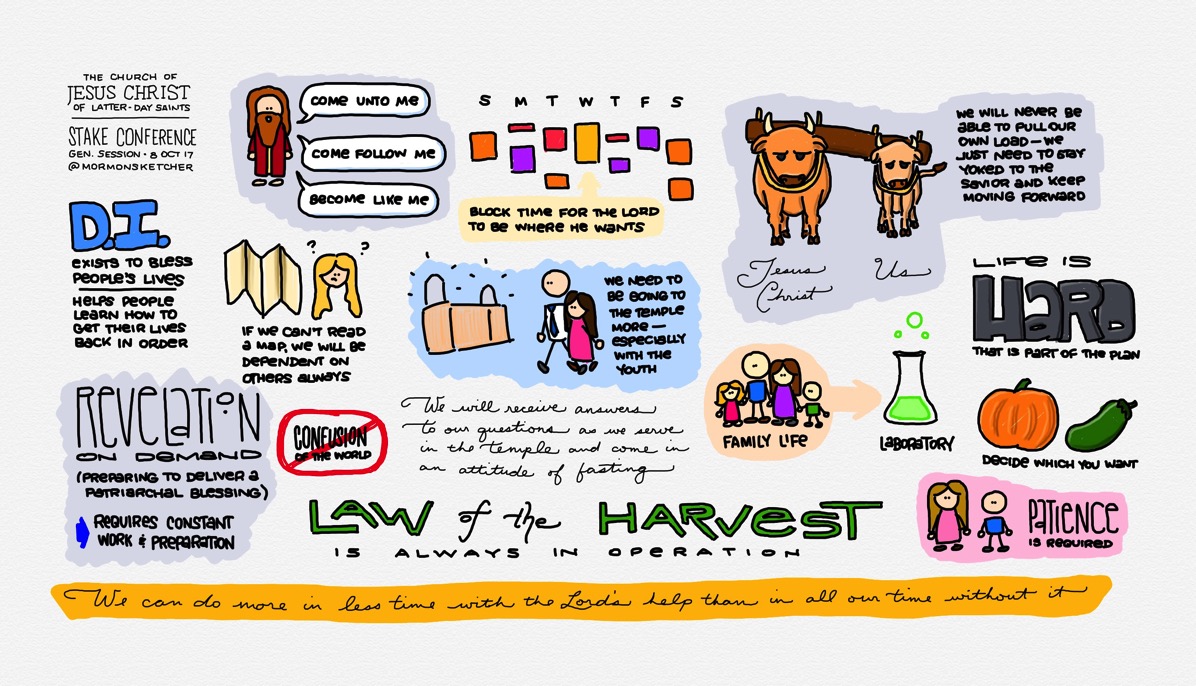 THE CHURCH OF
JESUS CHRIST
OF LATTER-DAY SAINTS
STAKE CONFERENCE
GEN. SESSION • 8 OCT 17
@MORMONSKETCHER
COME UNTO ME
COME FOLLOW ME
BECOME LIKE ME
S M T W T F S
BLOCK TIME FOR THE LORD
TO BE WHERE HE WANTS
WE WILL NEVER BE
ABLE TO PULL OUR
OWN LOAD — WE
JUST NEED TO STAY
YOKED TO THE
SAVIOR AND KEEP
MOVING FORWARD
Jesus
Christ
Us
D.I.
EXISTS TO BLESS
PEOPLE'S LIVES
HELPS PEOPLE
LEARN HOW TO
GET THEIR LIVES
BACK IN ORDER
? ?
IF WE CAN'T READ
A MAP, WE WILL BE
DEPENDENT ON
OTHERS ALWAYS
WE NEED TO
BE GOING TO
THE TEMPLE
MORE —
ESPECIALLY
WITH THE
YOUTH
LIFE IS
HARD
THAT IS PART OF THE PLAN
FAMILY LIFE
LABORATORY
DECIDE WHICH YOU WANT
REVELATION
ON DEMAND
(PREPARING TO DELIVER A
PATRIARCHAL BLESSING)
REQUIRES CONSTANT
WORK & PREPARATION
CONFUSION
OF THE WORLD
We will receive answers
to our questions as we serve
in the temple and come in
an attitude of fasting
LAW of the HARVEST
IS ALWAYS IN OPERATION
PATIENCE
IS REQUIRED
We can do more in less time with the Lord's help than in all our time without it